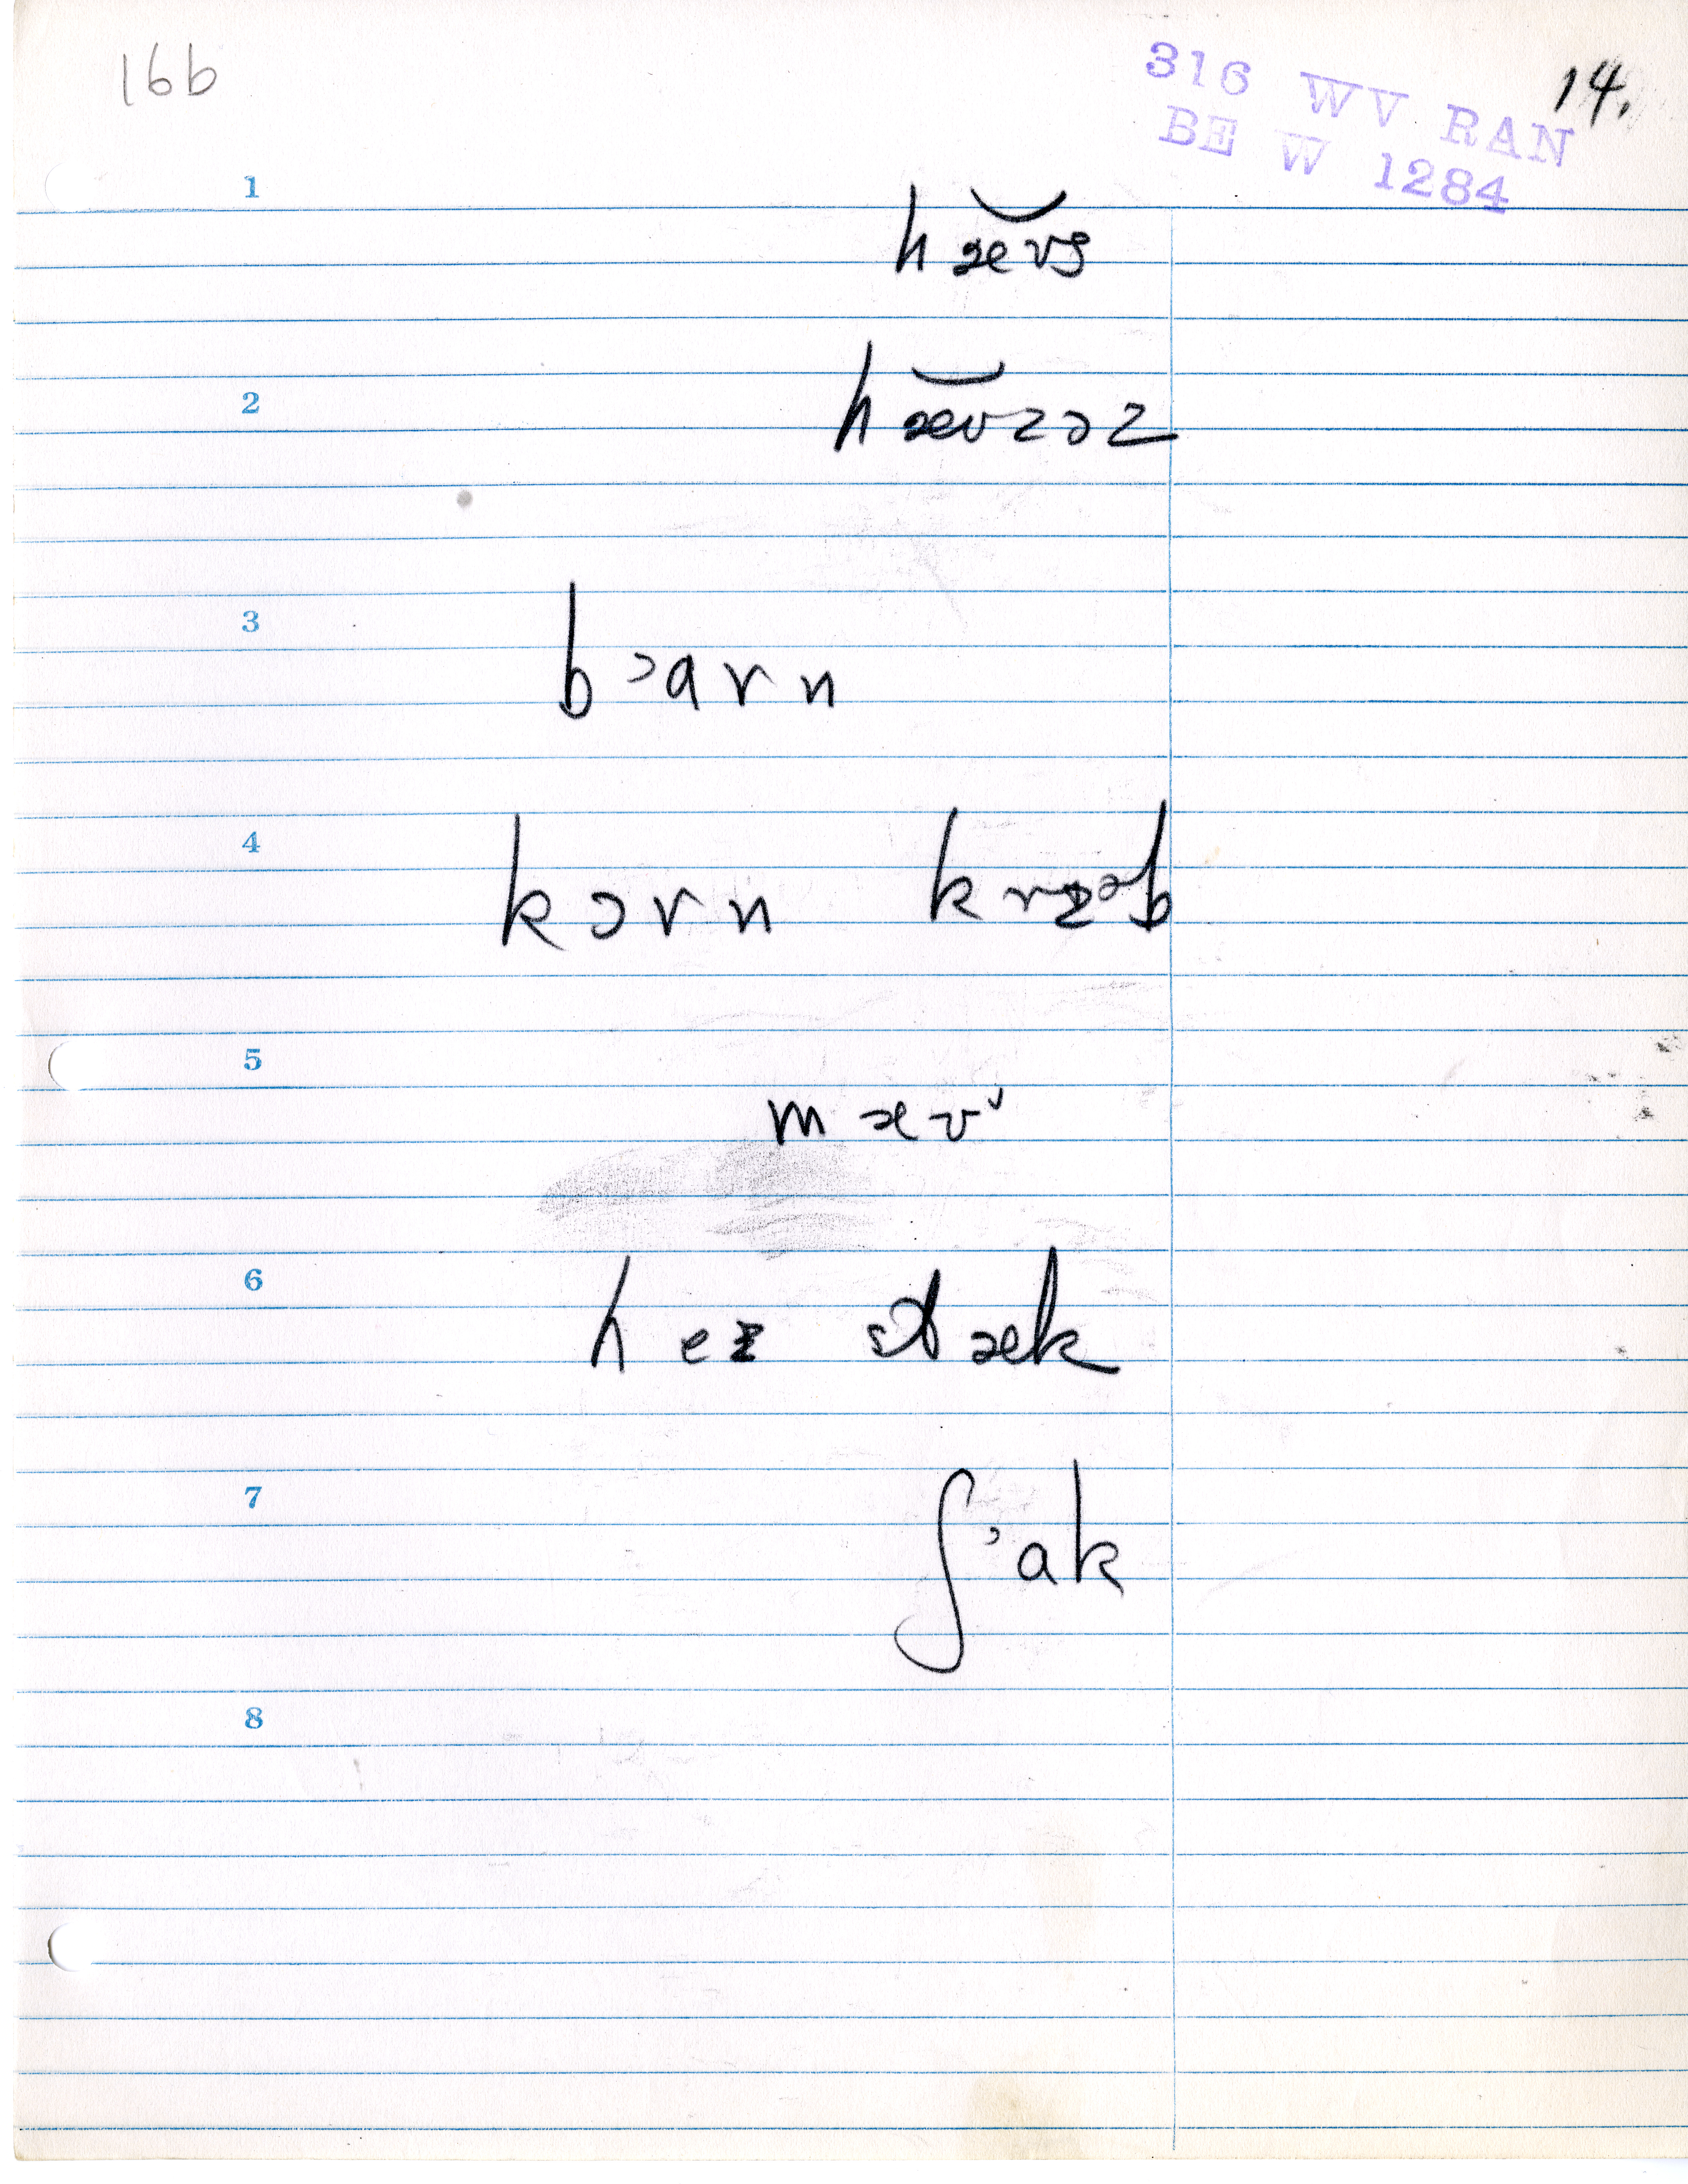 16b
14.
316 WV RAN
BE W 1284
1
hæʊs
2
hæʊzəz
3
bɔarn
4
kɔrn krɪəb
5
mæʊ
6
hez stæk
7
ʃɔak
8